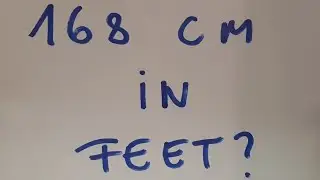 168 CM
iN
FEET?